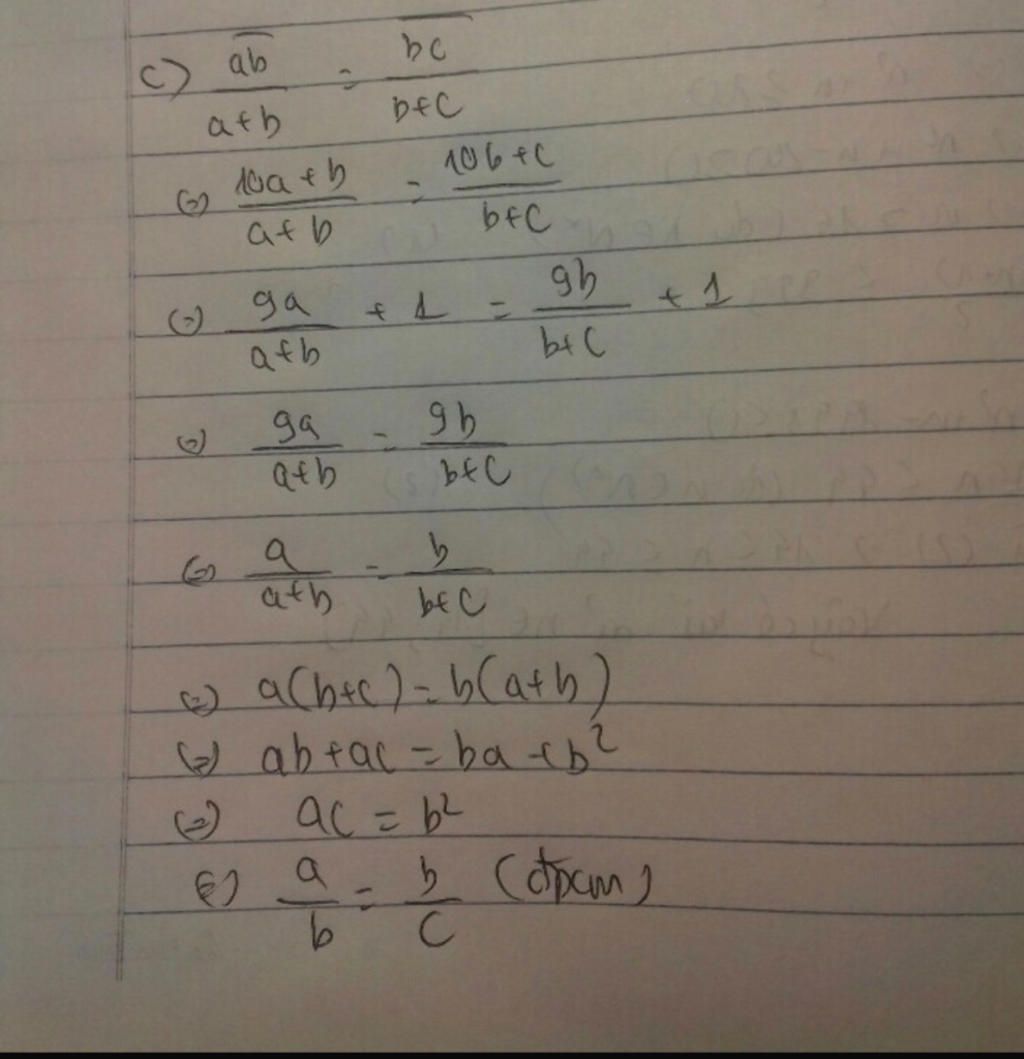 c) \frac{\overline{ab}}{a+b} = \frac{\overline{bc}}{b+c}
⇔ \frac{10a+b}{a+b} = \frac{10b+c}{b+c}
⇔ \frac{9a}{a+b} + 1 = \frac{9b}{b+c} + 1
⇔ \frac{9a}{a+b} = \frac{9b}{b+c}
⇔ \frac{a}{a+b} = \frac{b}{b+c}
⇔ a(b+c) = b(a+b)
⇔ ab + ac = ba + b²
⇔ ac = b²
⇔ \frac{a}{b} = \frac{b}{c} (đpcm)